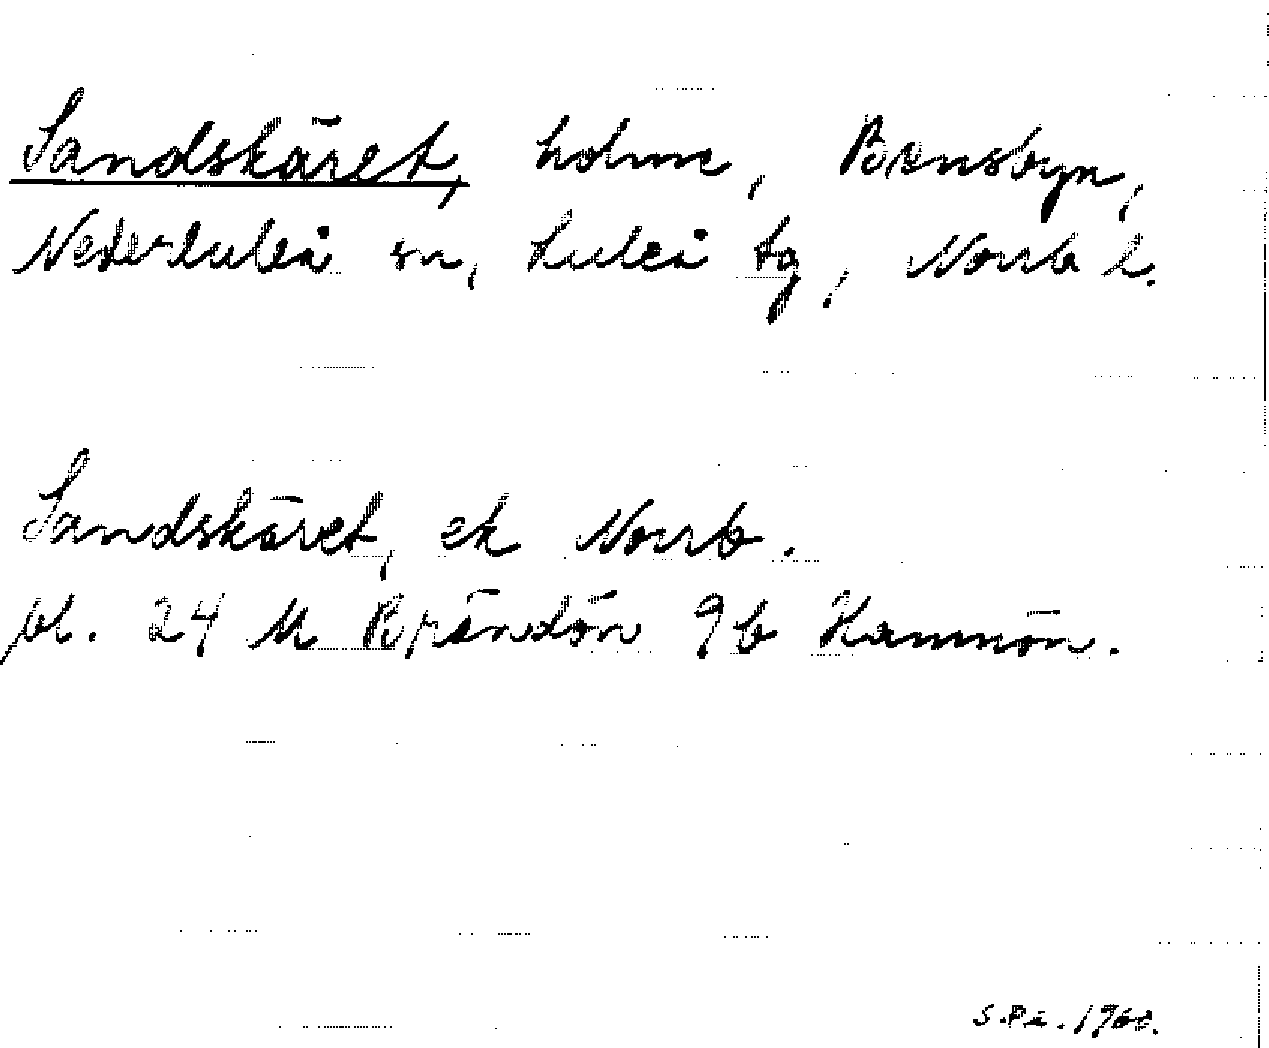 Sandskäret, holme, Brensbyn,
Nederluleå sn, Luleå tg, Norrb l.
Sandskäret, ek Norrb.
bl. 24 M Brändön 9b Hamnön.
S.Pe. 1960.